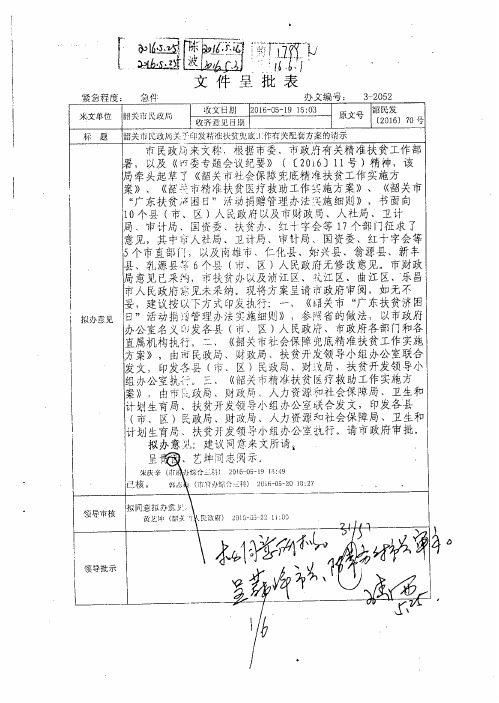 2016.5.25
陈波
2016.5.26
1799
2016.5.25
2016.5.31
16.6.1
文件呈批表
紧急程度： 急件 办文编号： 3-2052
来文单位 韶关市民政局 收文日期 2016-05-19 15:03 原文号 韶民发〔2016〕70号
收齐意见日期
标 题 韶关市民政局关于印发精准扶贫兜底工作有关配套方案的请示
拟办意见
市民政局来文称，根据市委、市政府有关精准扶贫工作部
署，以及《市委专题会议纪要》（〔2016〕11号）精神，该
局牵头起草了《韶关市社会保障兜底精准扶贫工作实施方
案》、《韶关市精准扶贫医疗救助工作实施方案》、《韶关市
“广东扶贫济困日”活动捐赠管理办法实施细则》，书面向
10个县（市、区）人民政府以及市财政局、人社局、卫计
局、审计局、国资委、扶贫办、红十字会等17个部门征求了
意见，其中市人社局、卫计局、审计局、国资委、红十字会等
5个市直部门，以及南雄市、仁化县、始兴县、翁源县、新丰
县、乳源县等6个县（市、区）人民政府无修改意见。市财政
局意见已采纳，市扶贫办以及浈江区、武江区、曲江区、乐昌
市人民政府意见未采纳。现将方案呈请市政府审阅。如无不
妥，建议按以下方式印发执行：一、《韶关市“广东扶贫济困
日”活动捐赠管理办法实施细则》，参照省的做法，以市政府
办公室名义印发各县（市、区）人民政府、市政府各部门和各
直属机构执行。二、《韶关市社会保障兜底精准扶贫工作实施
方案》，由市民政局、财政局、扶贫开发领导小组办公室联合
发文，印发各县（市、区）民政局、财政局、扶贫开发领导小
组办公室执行。三、《韶关市精准扶贫医疗救助工作实施方
案》，由市民政局、财政局、人力资源和社会保障局、卫生和
计划生育局、扶贫开发领导小组办公室联合发文，印发各县
（市、区）民政局、财政局、人力资源和社会保障局、卫生和
计划生育局、扶贫开发领导小组办公室执行。请市政府审批。
拟办意见：建议同意来文所请。
艺坤同志阅示。
朱庆辛（市府办综合三科） 2016-05-19 15:49
已核。（市府办综合三科） 2016-05-20 10:27
领导审核
拟同意拟办意见。
黄艺坤（韶关市人民政府） 2016-05-22 11:00
领导批示
31/5
拟同意所拟。
5.25
1/6